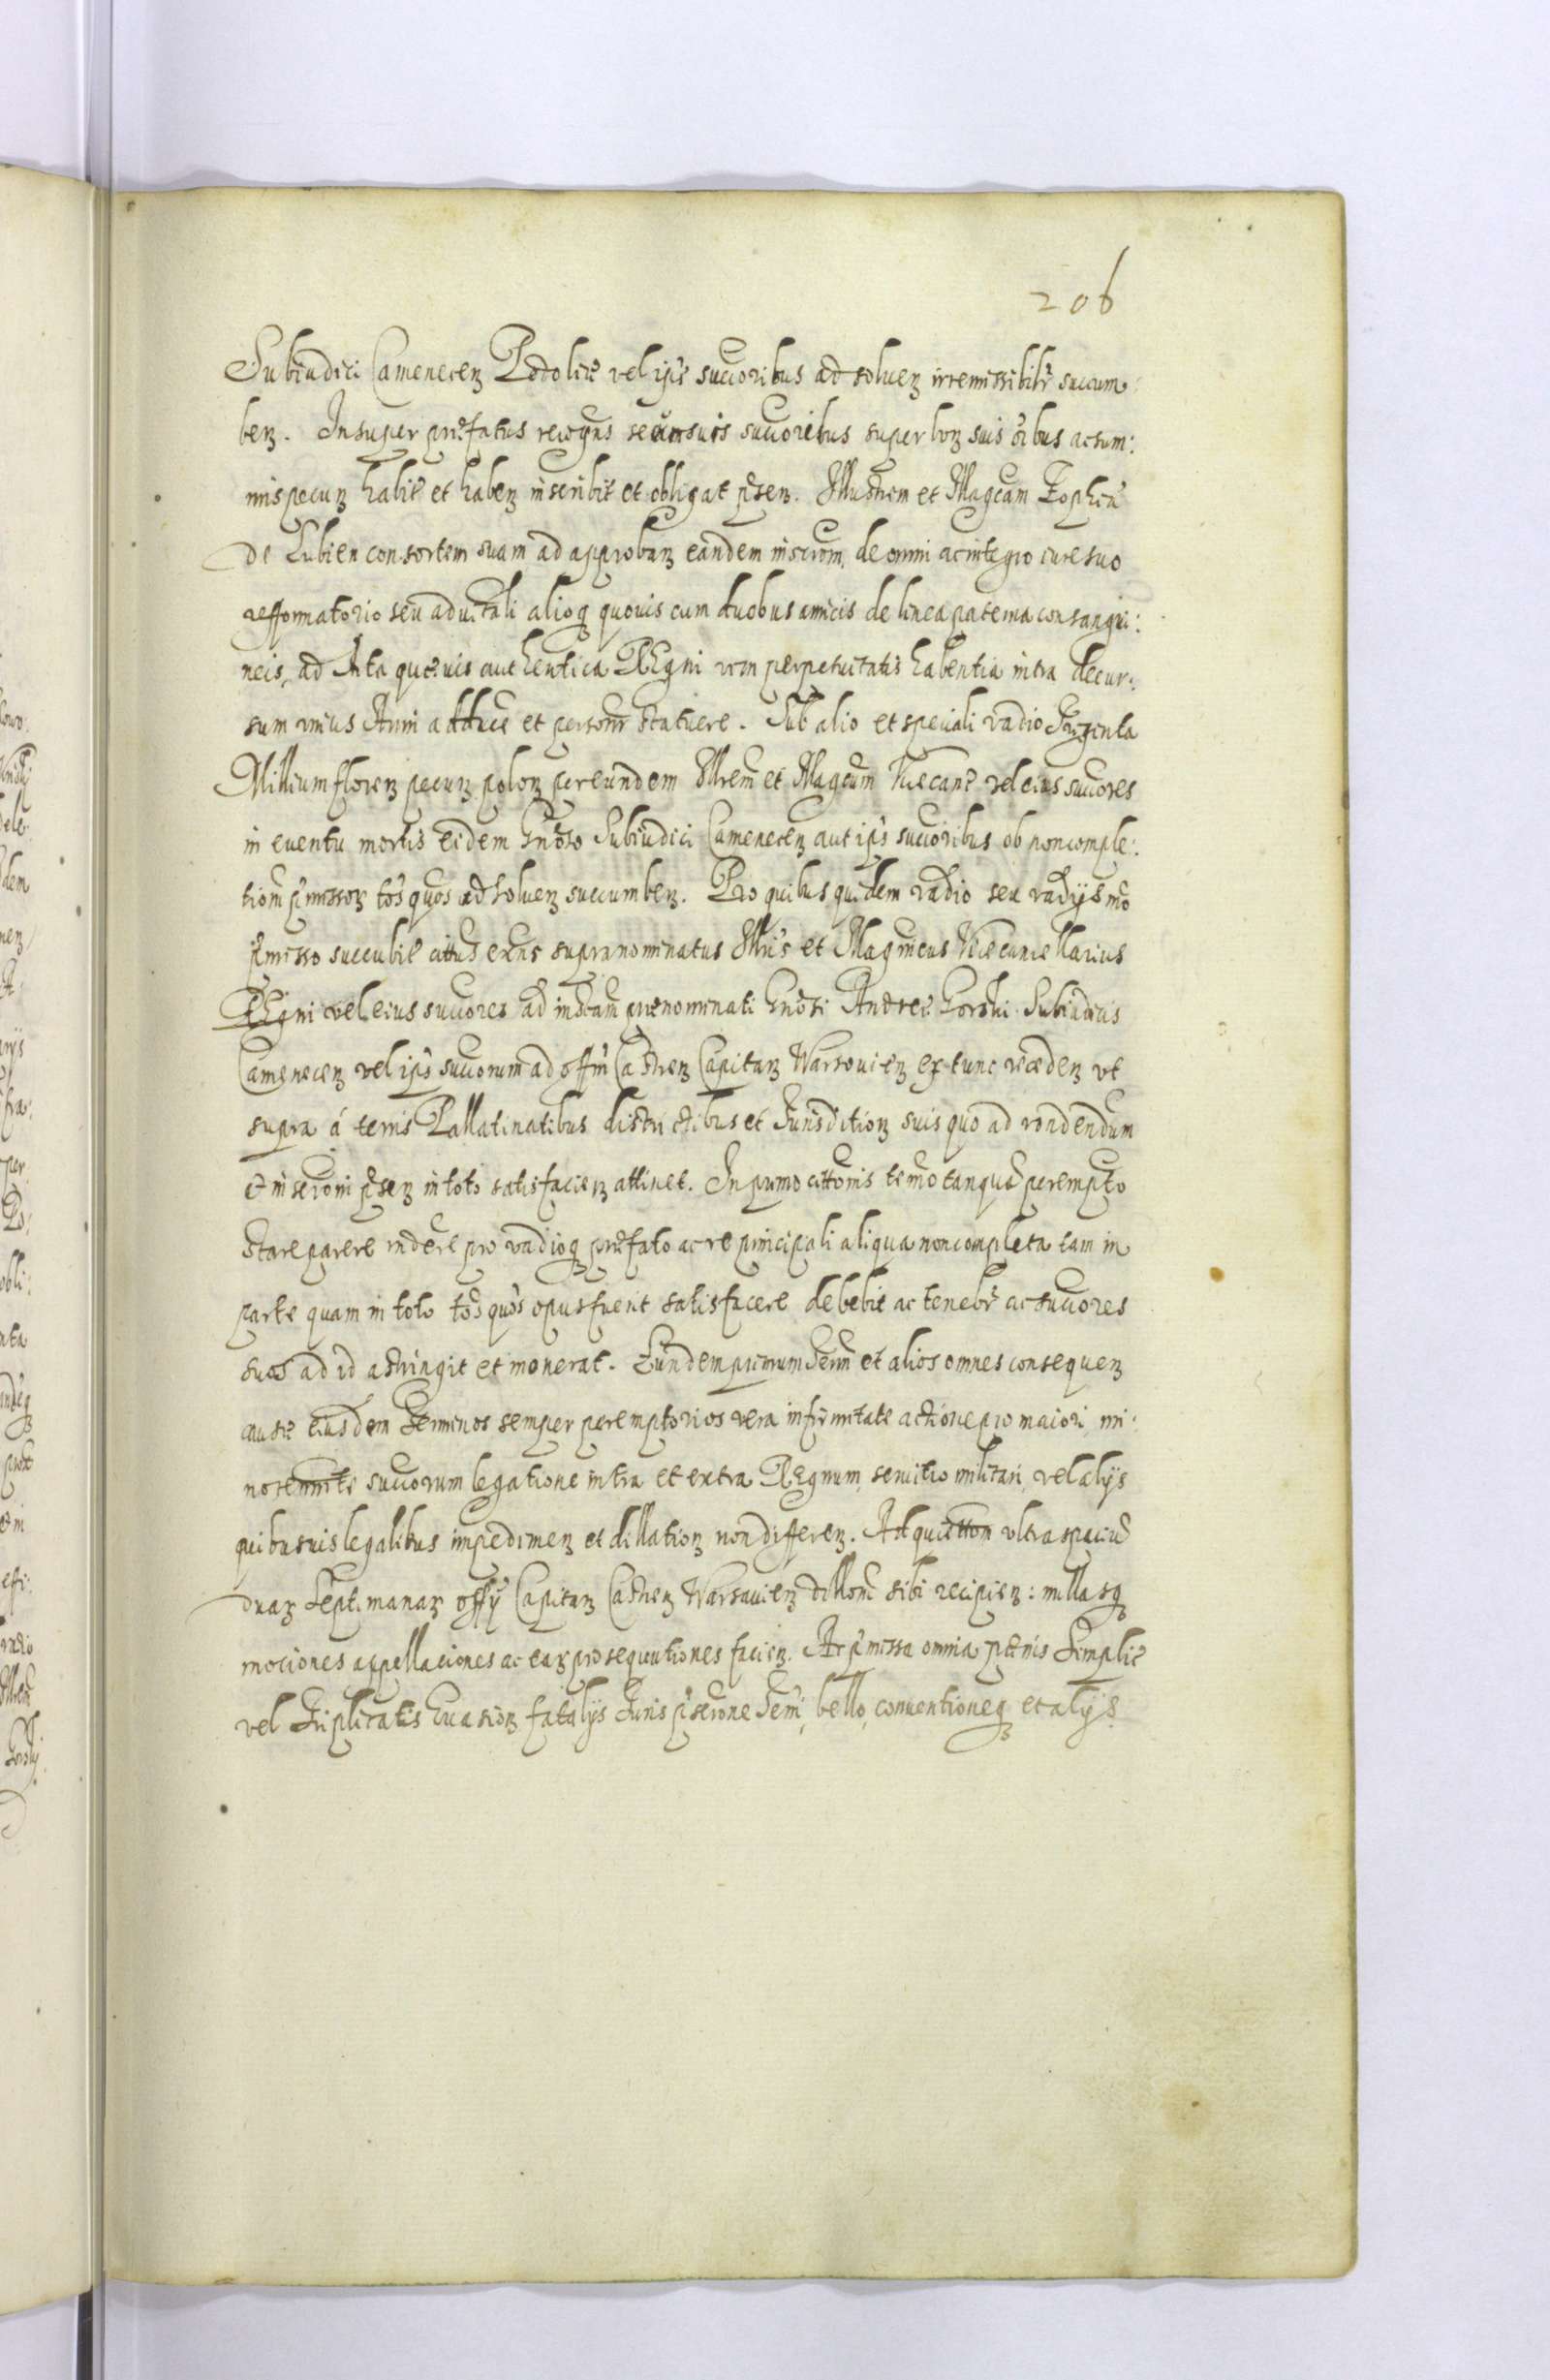 206
Subiudici Camenecen Podoliæ vel ipīs succoribus ad soluen irremissibilr succum:
ben. Insuper præfatus recogns secum suis succoribus super bon suis oībus ac sum:
mis pecun habit et haben inscribit et obligat psen. Illustrem et Magcam Zophiã
de Lubien consortem suam ad approban eandem inscrom, de omni ac integro iure suo
refformatorio seu aduitali alioq quouis cum duobus amicis de linea paterna consangui:
neis, ad Acta quæuis authentica REgni vim perpetuitatis habentia intra decur:
sum vnius Anni adduce et personr statuere. Sub alio et speciali vadio Triginta
Millium floren pecun polon per eundem Illrem et Magcum Vicecanc vel eius succores
in euentu mortis eidem Gnoso Subiudici Camenecen aut ipīs succoribus ob non comple:
tiom pmissor tos quos ad soluen succumben. Pro quibus quidem vadio seu vadijs mo
pmisso succubit cittus exns supranominatus Illris et Magnicus Vicecancellarius
REgni vel eius succores ad instam prænominati Gnosi Andreæ Gorski Subiudicis
Camenecen vel ipīs succorum ad offm Castren Capitan Warsouien ex tunc receden vt
supra á terris Pallatinatibus districtibus et Jurisdition suis quo ad rondendum
et inscroni psen in toto satisfacien attinet. In primo cittonis termo tanqua perempto
stare parere rndere pro vadioq præfato ac re principali aliqua non completa tam in
parte quam in toto tos quos opus fuerit satisfacere debebit ac tenebr ac succores
suos ad id astringit et inonerat. Eundem primum Term et alios omnes consequen
causæ eiusdem Terminos semper peremptorios vera infirmitate actione pro maiori mi:
norennite succorum legatione intra et extra REgnum, seruitio militari, vel alijs
quibusuis legalibus impedimen et dillation non differen. Ad quiettom vltra spaciu
duar Septimanar offij Capitan Castren Warsauien dillom sibi recipien: nullasq
mociones appellaciones ac ear prosequutiones facien. Ac pmissa omnia
vel Triplicatis Euasion fatalijs Juris pscrone Terrí, bello, conuentioneq et alijs